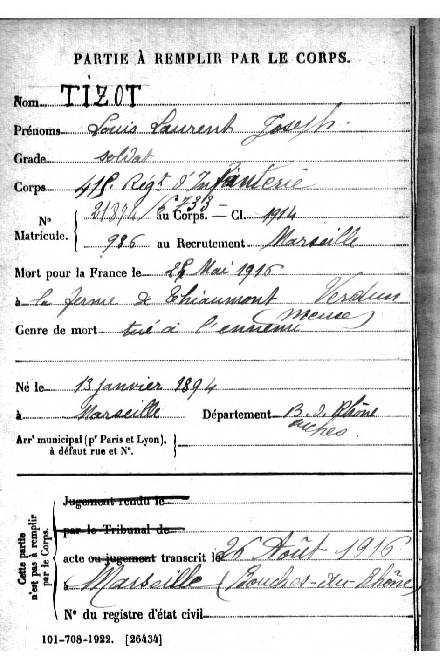 PARTIE À REMPLIR PAR LE CORPS.
Nom TIZOT
Prénoms Louis Laurent Joseph
Grade soldat
Corps 415 Régt d'Infanterie
N° Matricule. 21874 / au Corps. — Cl. 1914
986 au Recrutement Marseille
Mort pour la France le 25 Mai 1916
à la ferme de Thiaumont Verdun
(Meuse)
Genre de mort tué à l'ennemi
Né le 13 janvier 1894
à Marseille Département B. d. Rhône
ouches
Arrt municipal (pr Paris et Lyon),
à défaut rue et N°.
Cette partie n'est pas à remplir par le Corps.
Jugement rendu le
par le Tribunal de
acte ou jugement transcrit le 26 Août 1916
à Marseille (Bouches-du-Rhône)
N° du registre d'état civil
101-708-1922. [26434]